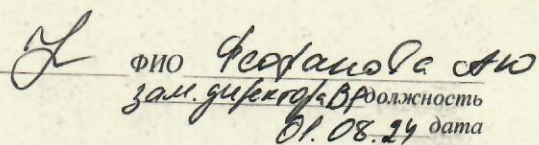 ФИО Феофанова АЮ
зам. директора ВР должность
01.08.24 дата